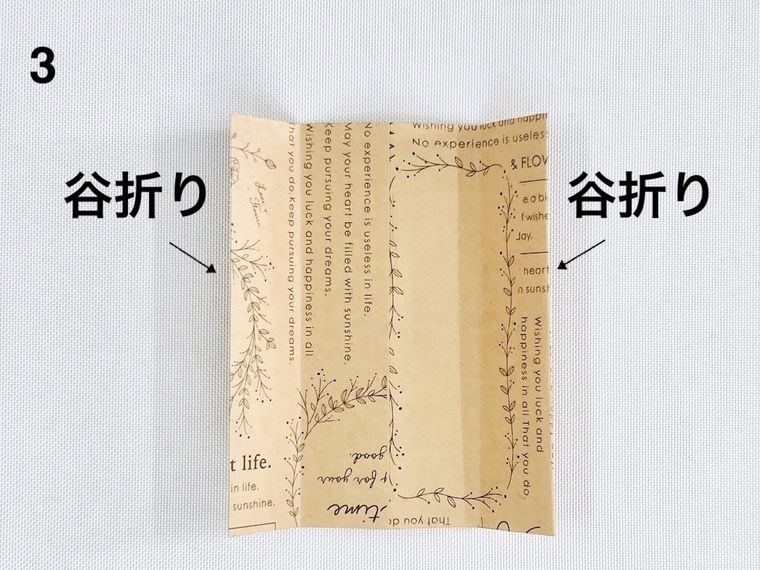 3
谷折り
谷折り
That you do.Keep pursuing your dreams.
Wishing you luck and happiness in all
Keep pursuing your dreams.
May your heart be filled with sunshine.
No experience is useless in life.
Wishing you luck and happin
No experience is useless
& FLOW
Joy.
heart
n sunsh
Wishing you luck and
happiness in all That you do
good.
for your
time
t life.
in life.
sunshine.
That you do